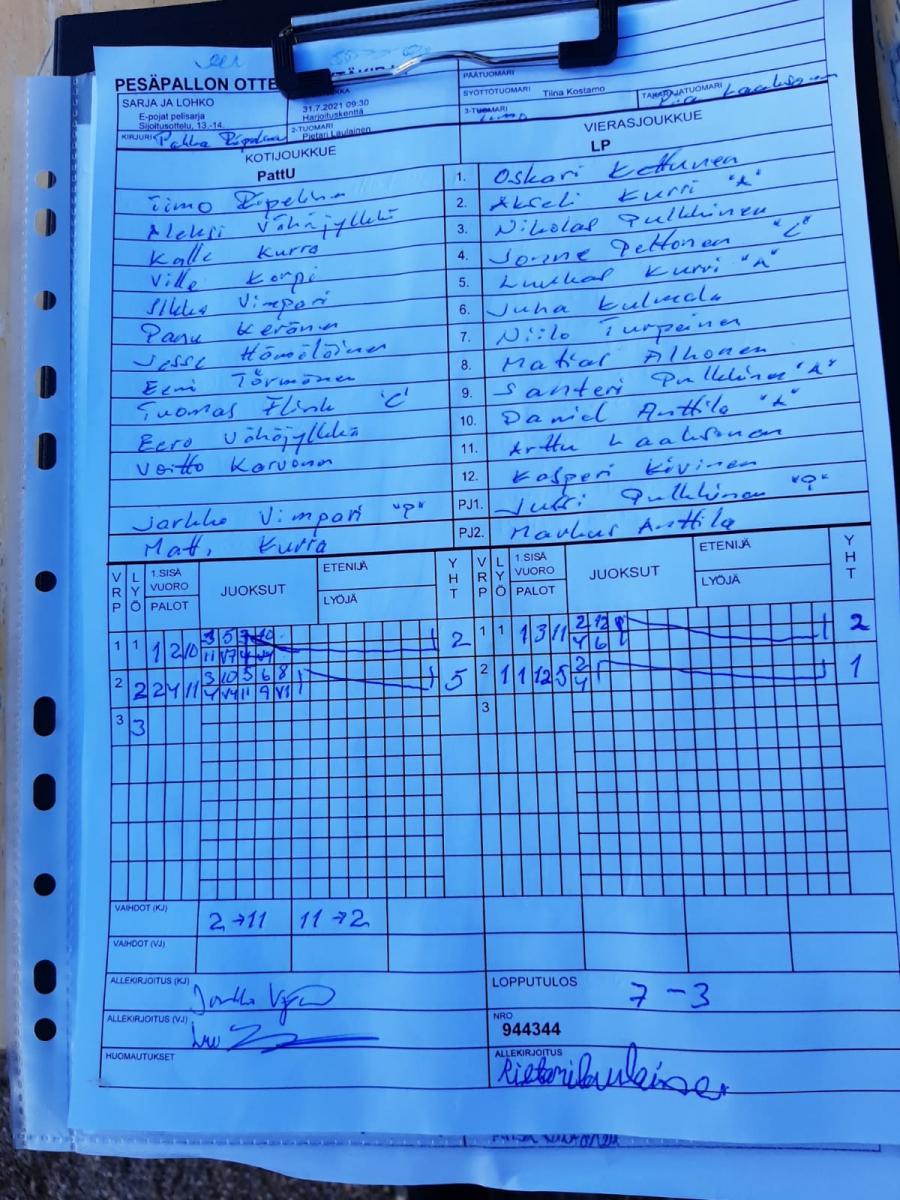 PESÄPALLON OTTE
PÄÄTUOMARI
SARJA JA LOHKO
E-pojat pelisarja
Sijoitusottelu, 13.-14.
31.7.2021 09:30
Harjoituskenttä
SYÖTTÖTUOMARI Tiina Kostamo
TAKARAJATUOMARI
3-TUOMARI
KIRJURI Pekka
2-TUOMARI
Pietari Laulainen
KOTIJOUKKUE
PattU
VIERASJOUKKUE
LP
Timo 1. Oskari Kettunen
Aleksi Vähäjylkkä 2. Akseli Kurri "A"
Kalle Kurra 3. Nikolas Pulkkinen
Ville Korpi 4. Jonne Peltonen "C"
Ilkka Vimpari 5. Luukas Kurri "A"
Panu Keränen 6. Juha Kulmala
Jesse Hämäläinen 7. Niilo Turpeinen
Eemi Törmänen 8. Matias Alhonen
Tuomas Flink "C" 9. Santeri Pulkkinen "A"
Eero Vähäjylkkä 10. Daniel Anttila "A"
Voitto Karvonen 11. Arttu Laaksonen
12. Kasperi Kivinen
Jarkko Vimpari "P" PJ1. Jussi Pulkkinen "P"
Matti Kurra PJ2. Markus Anttila
VRP LYÖ 1.SISÄ VUORO PALOT JUOKSUT ETENIJÄ LYÖJÄ YHT VRP LYÖ 1.SISÄ VUORO PALOT JUOKSUT ETENIJÄ LYÖJÄ YHT
1 1 1 2 10 2 1 1 1 3 11 2
2 2 2 4 11 3 10 5 6 8 5 2 1 1 12 5 2 1
4 V4 11 9 V1 4
3 3 3
VAIHDOT (KJ) 2→11 11→2
VAIHDOT (VJ)
ALLEKIRJOITUS (KJ)
LOPPUTULOS 7-3
ALLEKIRJOITUS (VJ)
NRO
944344
HUOMAUTUKSET
ALLEKIRJOITUS
Pietari Laulainen